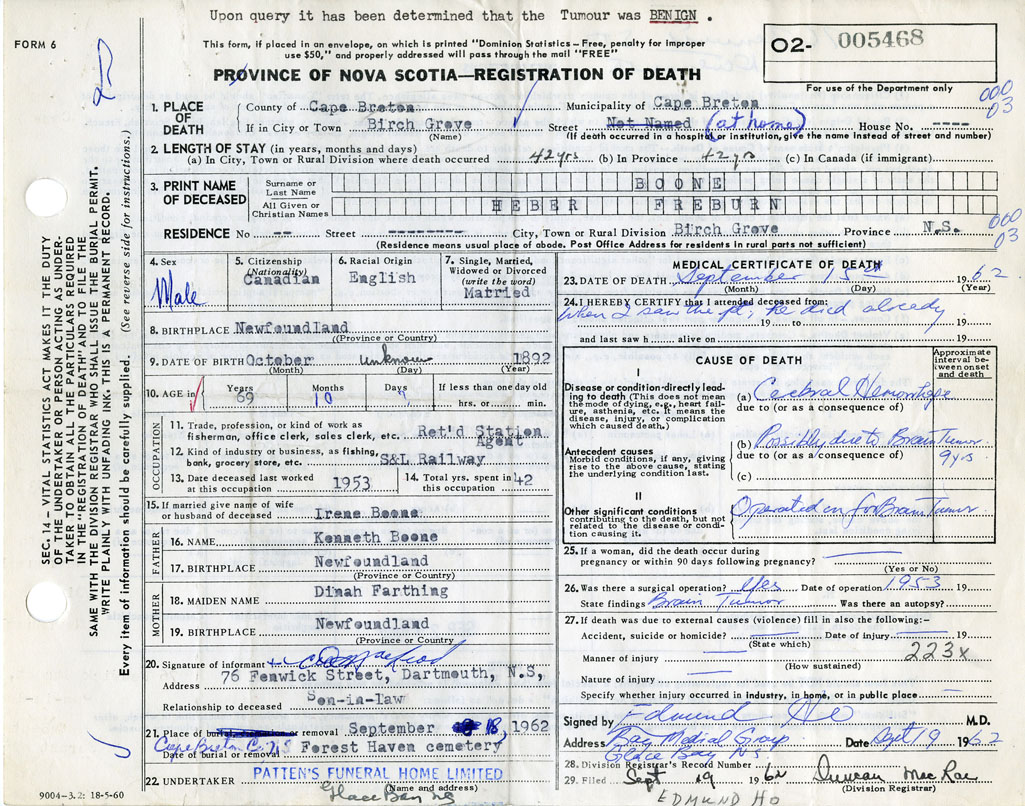 Upon query it has been determined that the Tumour was BENIGN .
FORM 6
This form, if placed in an envelope, on which is printed "Dominion Statistics – Free, penalty for improper
use $50," and properly addressed will pass through the mail "FREE"
O2- 005468
For use of the Department only
PROVINCE OF NOVA SCOTIA—REGISTRATION OF DEATH
000
03
1. PLACE OF DEATH County of Cape Breton Municipality of Cape Breton
If in City or Town Birch Grove Street Not Named (at home) House No. ----
(Name) (If death occurred in a hospital or institution, give the name instead of street and number)
2. LENGTH OF STAY (in years, months and days)
(a) In City, Town or Rural Division where death occurred 42 yrs (b) In Province 42 yrs (c) In Canada (if immigrant)
3. PRINT NAME OF DECEASED Surname or Last Name BOONE
All Given or Christian Names HEBER FREBURN
000
03
RESIDENCE No -- Street -------- City, Town or Rural Division Birch Grove Province N.S.
(Residence means usual place of abode. Post Office Address for residents in rural parts not sufficient)
4. Sex Male
5. Citizenship (Nationality) Canadian
6. Racial Origin English
7. Single, Married, Widowed or Divorced (write the word) Married
8. BIRTHPLACE Newfoundland
(Province or Country)
9. DATE OF BIRTH October unknown 1892
(Month) (Day) (Year)
10. AGE in Years 69 Months 10 Days If less than one day old hrs. or min.
OCCUPATION
11. Trade, profession, or kind of work as fisherman, office clerk, sales clerk, etc. Ret'd Station Agent
12. Kind of industry or business, as fishing, bank, grocery store, etc. S&L Railway
13. Date deceased last worked at this occupation 1953
14. Total yrs. spent in this occupation 42
15. If married give name of wife or husband of deceased Irene Boone
FATHER
16. NAME Kenneth Boone
17. BIRTHPLACE Newfoundland
(Province or Country)
MOTHER
18. MAIDEN NAME Dinah Farthing
19. BIRTHPLACE Newfoundland
(Province or Country
20. Signature of informant
Address 76 Fenwick Street, Dartmouth, N.S,
Relationship to deceased Son-in-law
21. Place of burial, cremation or removal September 18, 1962
Cape Breton Co. N.S
Date of burial or removal Forest Haven cemetery
22. UNDERTAKER PATTEN'S FUNERAL HOME LIMITED
(Name and address)
Glace Bay NS
9004-3.2: 18-5-60
MEDICAL CERTIFICATE OF DEATH
23. DATE OF DEATH September 15th 1962
(Month) (Day) (Year)
24. I HEREBY CERTIFY that I attended deceased from:
When I saw the pt, he died already
19 to 19
and last saw h alive on 19
CAUSE OF DEATH
Approximate interval between onset and death
I
Disease or condition directly leading to death (This does not mean the mode of dying, e.g., heart failure, asthenia, etc. It means the disease, injury, or complication which caused death.)
(a) Cerebral Hemorrhage
due to (or as a consequence of)
Antecedent causes
Morbid conditions, if any, giving rise to the above cause, stating the underlying condition last.
(b) Possibly due to Brain Tumor
due to (or as a consequence of) 9 yrs.
(c)
II
Other significant conditions
contributing to the death, but not related to the disease or condition causing it.
Operated in for Brain Tumor
25. If a woman, did the death occur during
pregnancy or within 90 days following pregnancy?
(Yes or No)
26. Was there a surgical operation? Yes Date of operation 1953 19
State findings Brain Tumor Was there an autopsy?
27. If death was due to external causes (violence) fill in also the following:–
Accident, suicide or homicide? Date of injury 19
(State which)
Manner of injury 223x
(How sustained)
Nature of injury
Specify whether injury occurred in industry, in home, or in public place
Signed by Edmund Ho M.D.
Address Bay Medical Group Date Sept 19 1962
Glace Bay N.S.
28. Division Registrar's Record Number
29. Filed Sept 19 1962 Duncan MacRae
(Division Registrar)
EDMUND HO
SEC. 14 – VITAL STATISTICS ACT MAKES IT THE DUTY
OF THE UNDERTAKER OR PERSON ACTING AS UNDER-
TAKER TO OBTAIN ALL THE PARTICULARS REQUIRED
IN THE "REGISTRATION OF DEATH" AND TO FILE THE
SAME WITH THE DIVISION REGISTRAR WHO SHALL ISSUE THE BURIAL PERMIT.
WRITE PLAINLY WITH UNFADING INK. THIS IS A PERMANENT RECORD.
Every item of information should be carefully supplied. (See reverse side for instructions.)